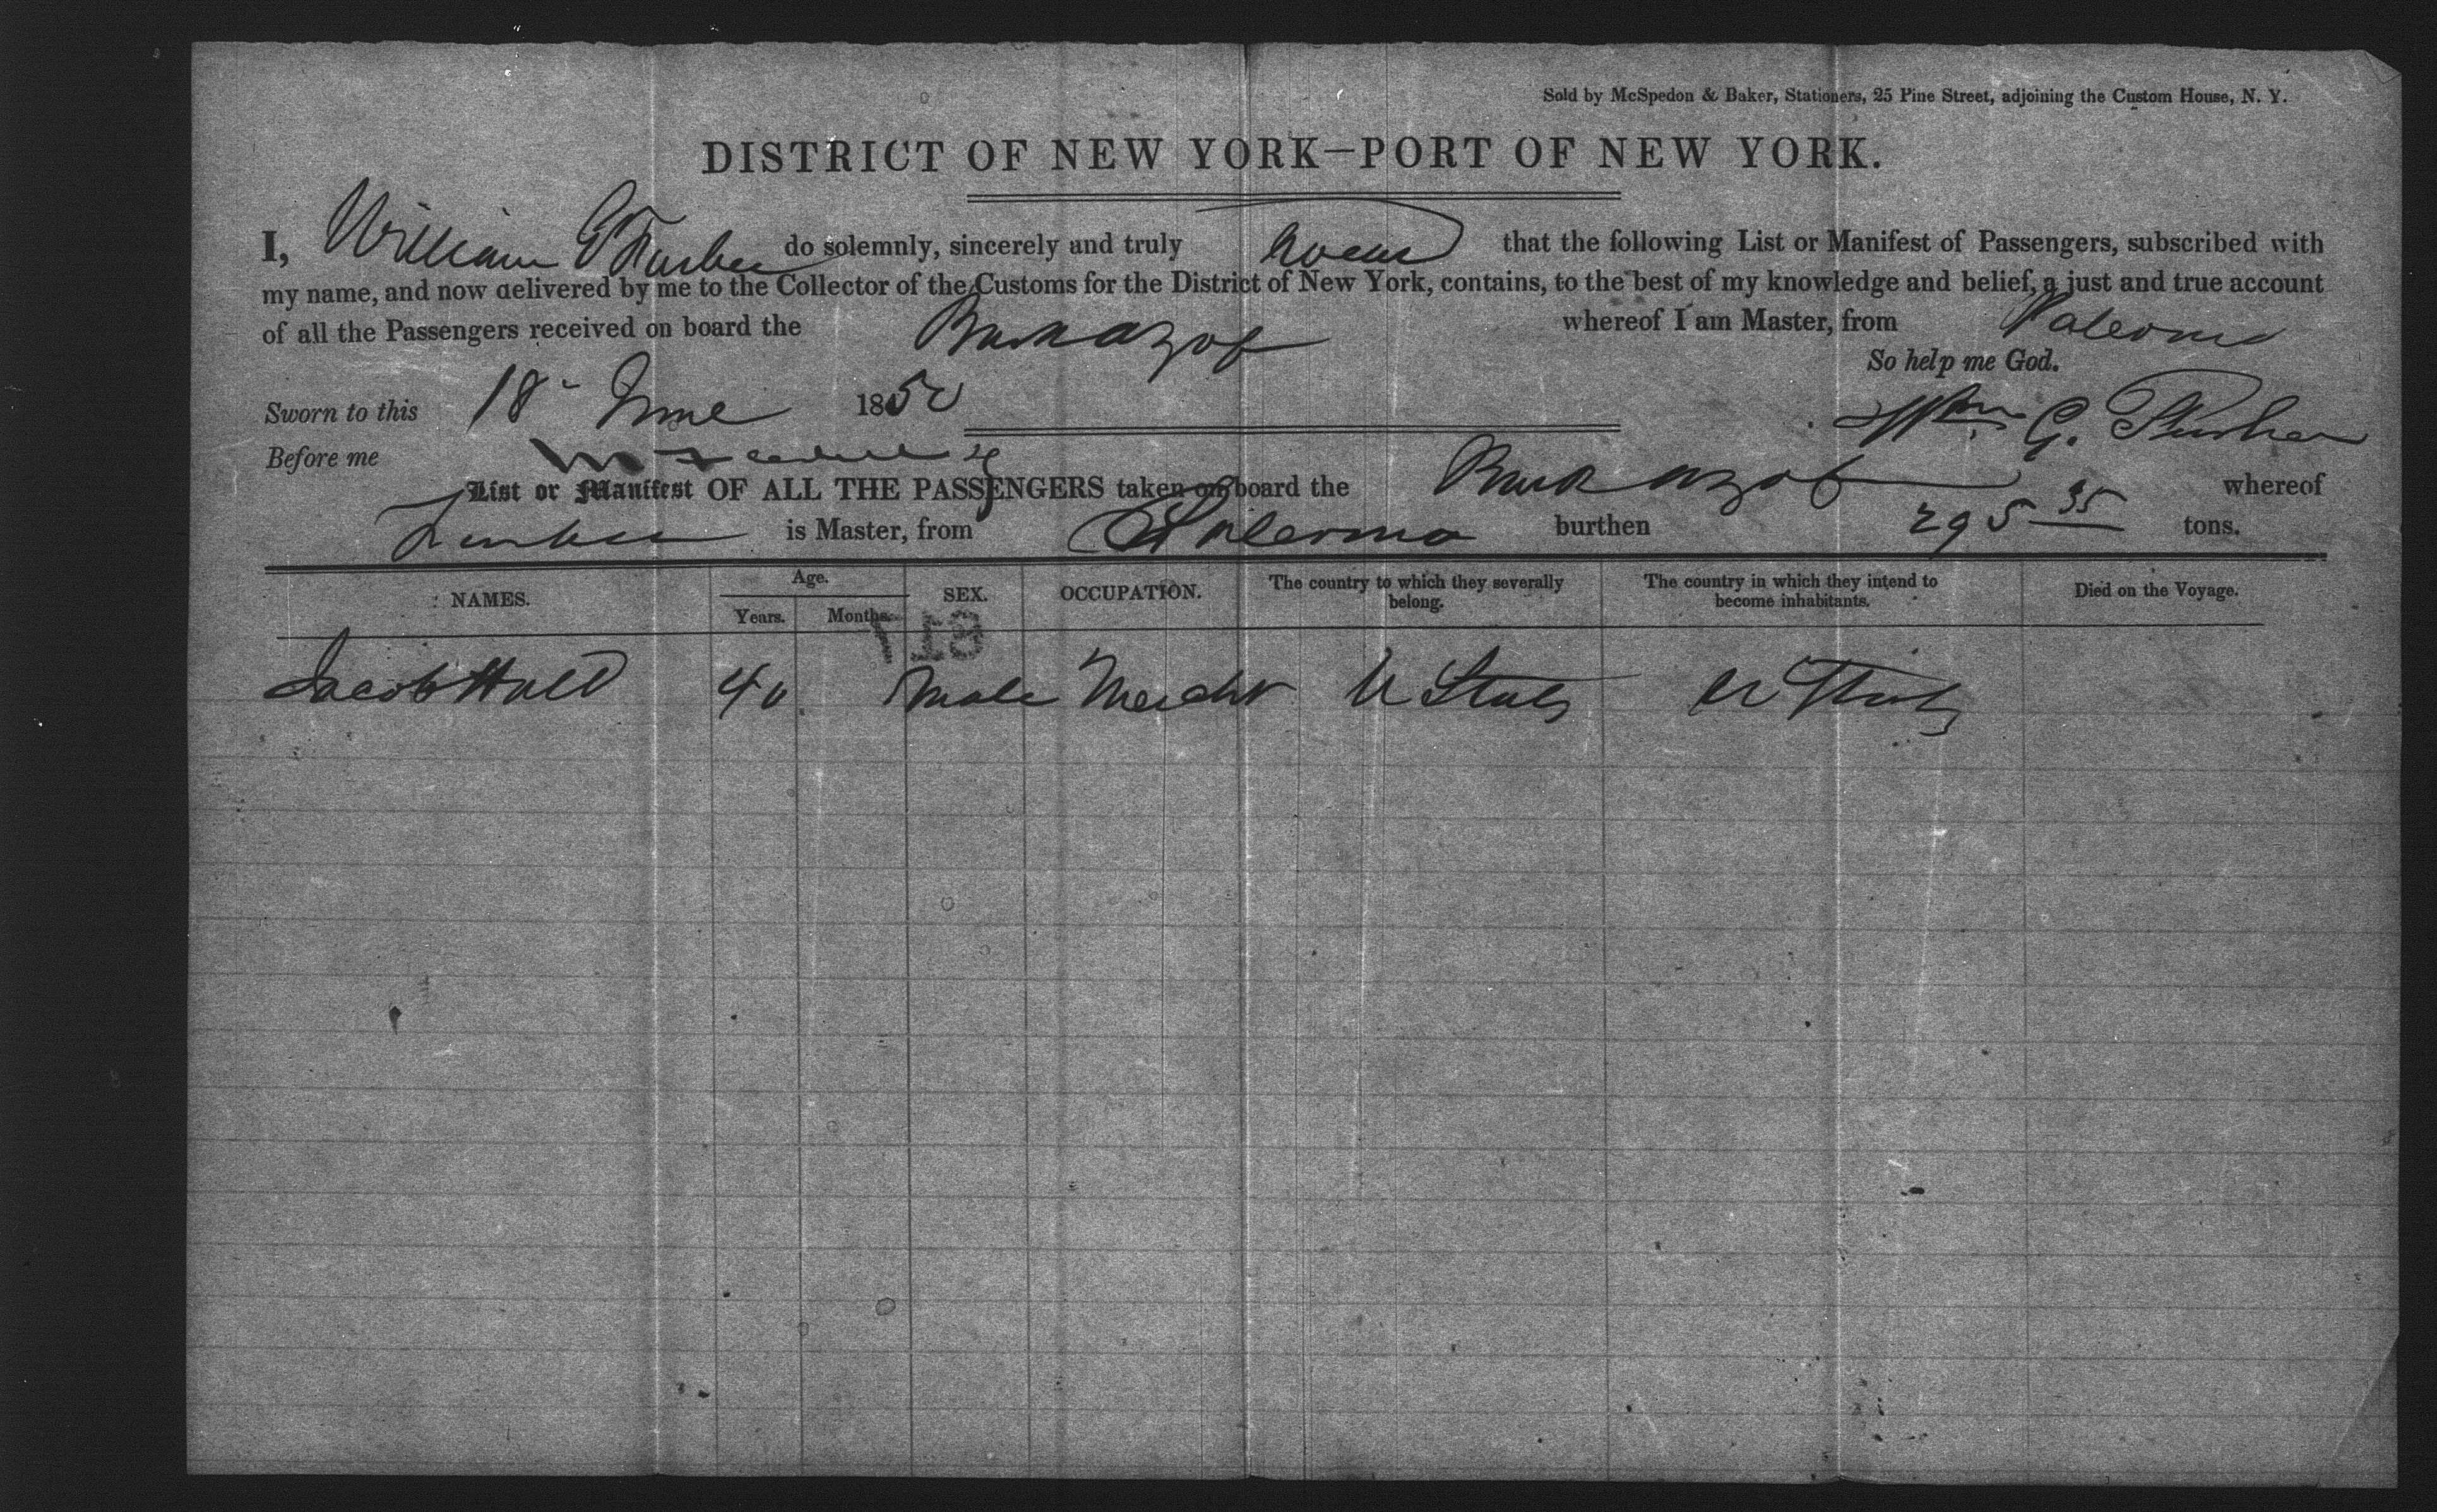 Sold by McSpedon & Baker, Stationers, 25 Pine Street, adjoining the Custom House, N. Y.
DISTRICT OF NEW YORK—PORT OF NEW YORK.
I, William G do solemnly, sincerely and truly that the following List or Manifest of Passengers, subscribed with
my name, and now delivered by me to the Collector of the Customs for the District of New York, contains, to the best of my knowledge and belief, a just and true account
of all the Passengers received on board the Bark Azof whereof I am Master, from Palermo
So help me God.
Sworn to this 18 June 1850
Wm G.
Before me
List or Manifest OF ALL THE PASSENGERS taken on board the Bark Azof whereof
is Master, from Palermo burthen 295 35 tons.
NAMES. Age. Years. Months. SEX. OCCUPATION. The country to which they severally belong. The country in which they intend to become inhabitants. Died on the Voyage.
Jacob Hall 40 Male Mercht U States U States